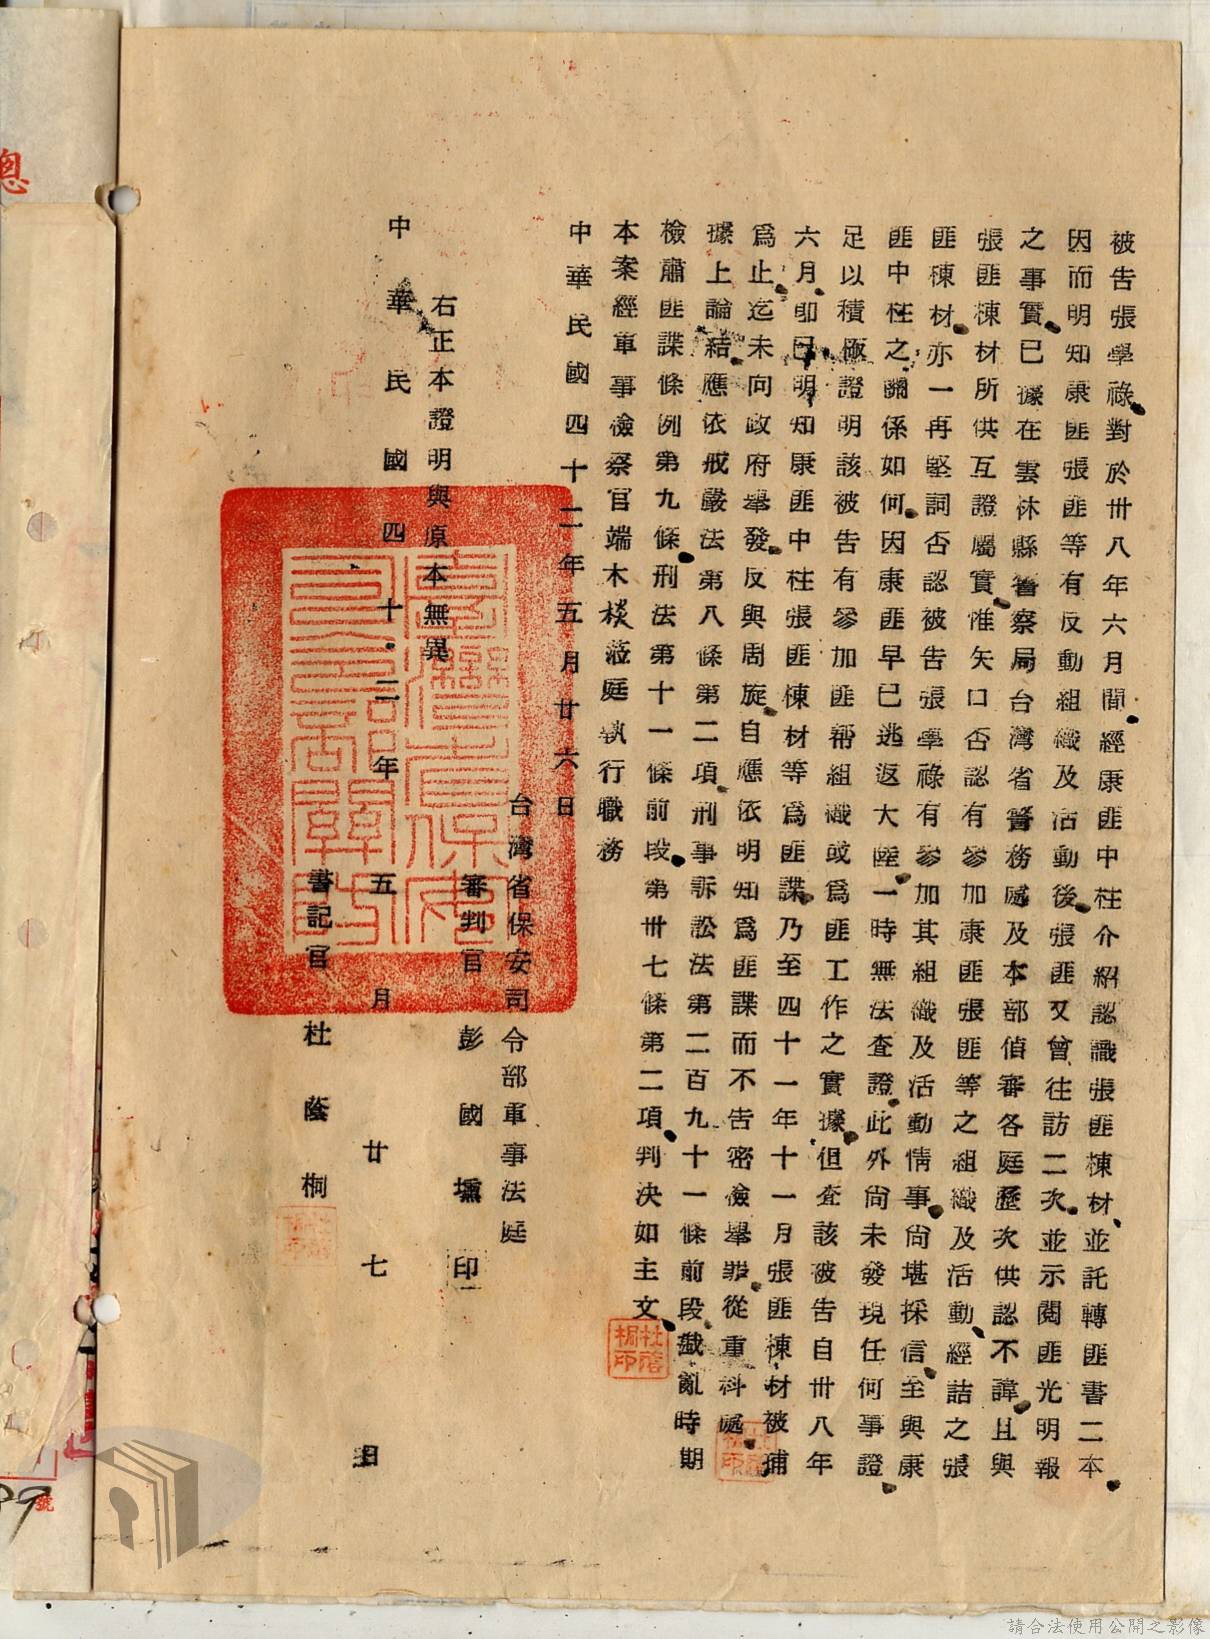 被告張學祿對於卅八年六月間經康匪中柱介紹認識張匪棟材並託轉匪書二本
因而明知康匪張匪等有反動組織及活動後張匪又曾往訪二次並示閱匪光明報
之事實已據在雲林縣警察局台灣省警務處及本部偵審各庭歷次供認不諱且與
張匪棟材所供互證屬實惟矢口否認有參加康匪張匪等之組織及活動經詰之張
匪棟材亦一再堅詞否認被告張學祿有參加其組織及活動情事尚堪採信至與康
匪中柱之關係如何因康匪早已逃返大陸一時無法查證此外尚未發現任何事證
足以積極證明該被告有參加匪幫組織或為匪工作之實據但查該被告自卅八年
六月即已明知康匪中柱張匪棟材等為匪諜乃至四十一年十一月張匪棟材被捕
為止迄未向政府舉發反與周旋自應依明知為匪諜而不告密檢舉罪從重科處
據上論結應依戒嚴法第八條第二項刑事訴訟法第二百九十一條前段戡亂時期
檢肅匪諜條例第九條刑法第十一條前段第卅七條第二項判決如主文
本案經軍事檢察官端木棪蒞庭執行職務
中華民國四十二年五月廿六日
台灣省保安司令部軍事法庭
審判官 彭國壎 印
右正本證明與原本無異
中華民國四十二年五月廿七日
書記官 杜蔭桐
杜蔭桐印
號
請合法使用公開之影像